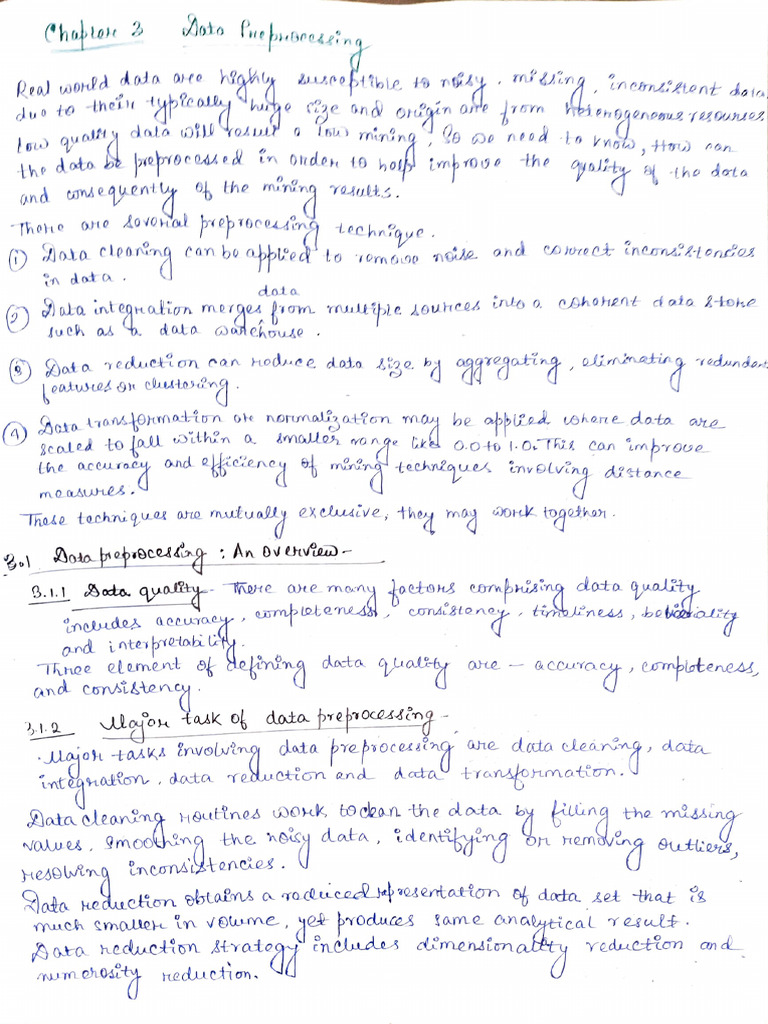 Chapter 3 Data Preprocessing
Real world data are highly susceptible to noisy, missing, inconsistent data,
due to their typically huge size and origin are from heterogeneous resources.
Low quality data will result a low mining, So we need to know, How can
the data be preprocessed in order to help improve the quality of the data
and consequently of the mining results.
There are several preprocessing technique.
① Data cleaning can be applied to remove noise and correct inconsistencies
in data.
data
② Data integration merges from multiple sources into a coherent data store
such as a data warehouse.
③ Data reduction can reduce data size by aggregating, eliminating redundent
features or clustering.
④ Data transformation or normalization may be applied where data are
scaled to fall within a smaller range like 0.0 to 1.0. This can improve
the accuracy and efficiency of mining techniques involving distance
measures.
These techniques are mutually exclusive, they may work together.
3.1 Data preprocessing : An overview -
3.1.1 Data quality - There are many factors comprising data quality
includes accuracy, completeness, consistency, timeliness,
and interpretability.
Three element of defining data quality are - accuracy, completeness,
and consistency.
3.1.2 Major task of data preprocessing -
Major tasks involving data preprocessing are data cleaning, data
integration, data reduction and data transformation.
Data cleaning routines work to clean the data by filling the missing
values, smoothing the noisy data, identifying or removing outliers,
resolving inconsistencies.
Data reduction obtains a reduced representation of data set that is
much smaller in volume, yet produces same analytical result.
Data reduction strategy includes dimensionality reduction and
numerosity reduction.